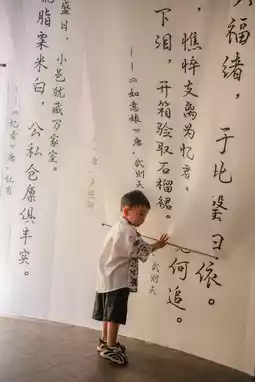 福绪，于此罄归依。
，憔悴支离为忆君。
何追。
下泪，开箱验取石榴裙。
——《如意娘》唐·武则天
武则天
盛日，小邑犹藏万家室。
脂粟米白，公私仓廪俱丰实。
——《忆昔》唐·杜甫